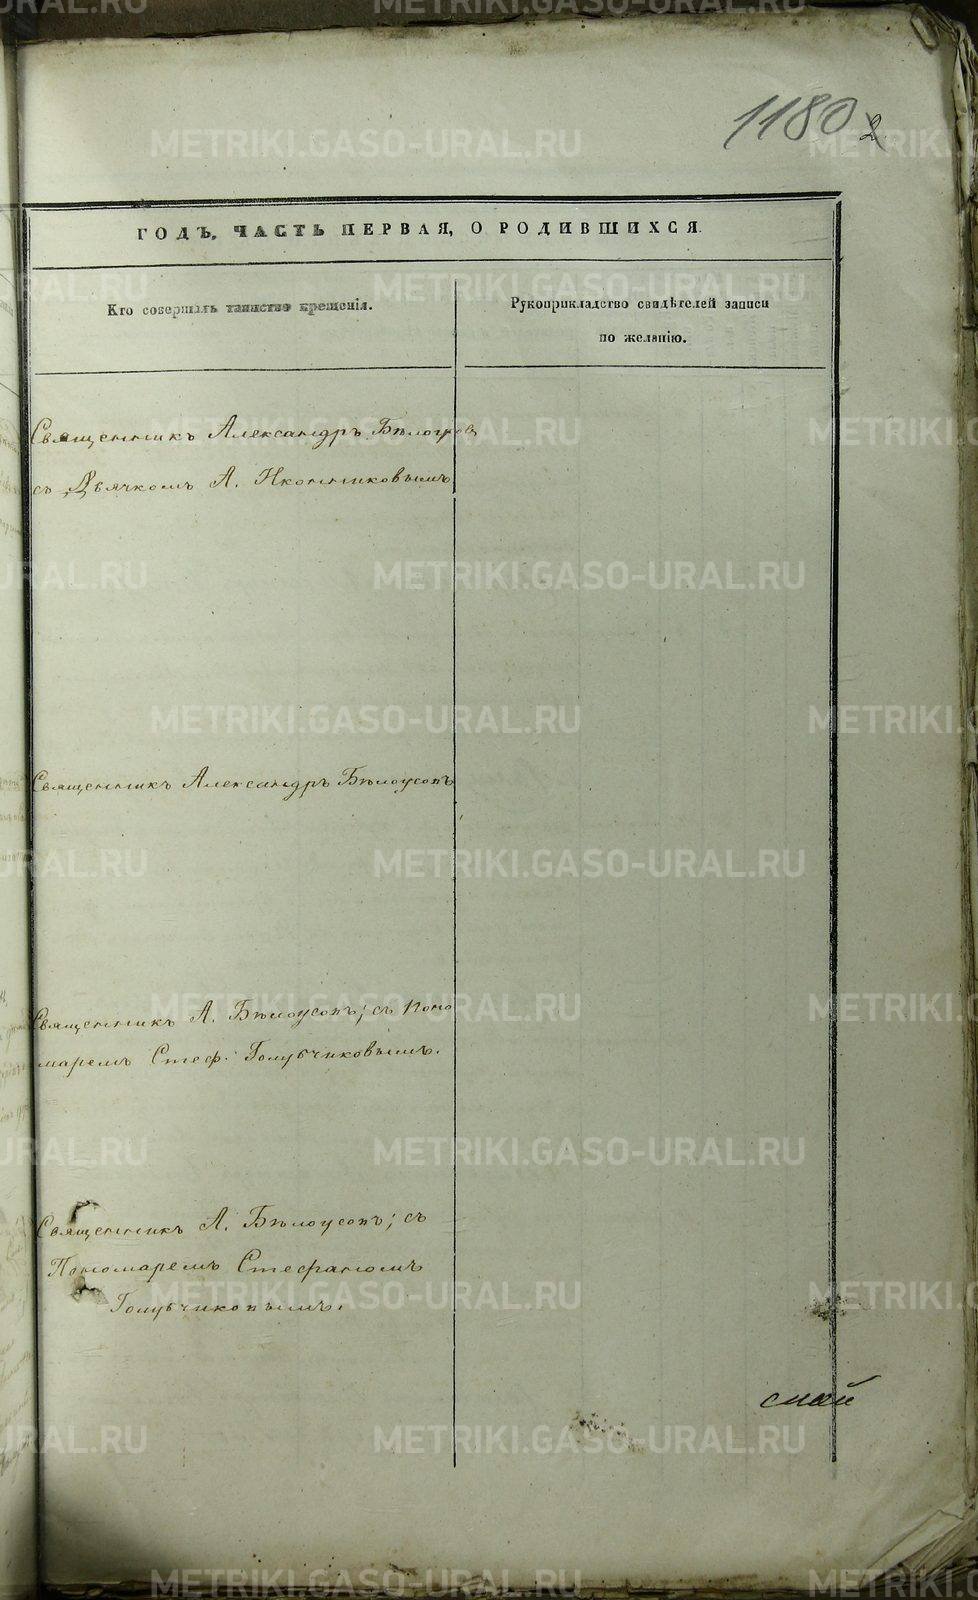 1180 2
ГОДЪ, ЧАСТЬ ПЕРВАЯ, О РОДИВШИХСЯ.
Кто совершалъ таинство крещенія.
Рукоприкладство свидѣтелей записи
по желанію.
Священникъ Александръ
съ Дьячкомъ А. Иконниковымъ
Священникъ Александръ Бѣлоусовъ
Священникъ А. Бѣлоусовъ; съ Поно
маремъ Стеф. Голубчиковымъ.
Священникъ А. Бѣлоусовъ; съ
Пономаремъ Стефаномъ
Голубчиковымъ.
METRIKI.GASO-URAL.RU